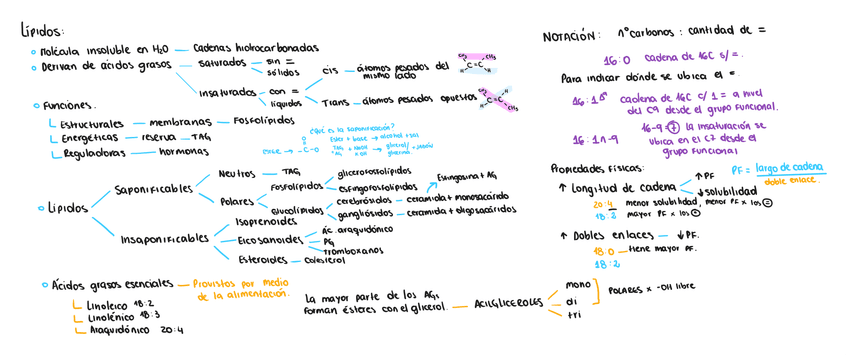 Lípidos:
Molécula insoluble en H2O — cadenas hidrocarbonadas
Derivan de ácidos grasos
saturados — sin =
sólidos
Insaturados — con =
líquidos
cis — átomos pesados del
mismo lado
Trans — átomos pesados opuestos
Funciones.
Estructurales — membranas — Fosfolípidos
Energéticas — reserva — TAG
Reguladoras — hormonas
¿Qué es la saponificación?
Ester + base → alcohol + sal
Lípidos
Saponificables
Neutros — TAG
Polares
Fosfolípidos
glicerofosfolípidos
esfingofosfolípidos
Glucolípidos
cerebrósidos — ceramida + monosacárido
gangliósidos — ceramida + oligosacáridos
Esfingosina + AG
Insaponificables
Isoprenoides
Eicosanoides
ác. araquidónico
PG
Tromboxanos
Esteroides — colesterol
Ácidos grasos esenciales — Provistos por medio
de la alimentación.
Linoleico 18:2
Linolénico 18:3
Araquidónico 20:4
La mayor parte de los AG,
forman ésteres con el glicerol. — ACILGLICEROLES
mono
di
tri
POLARES x -OH libre
NOTACIÓN: n° carbonos : cantidad de =
16:0 cadena de 16C s/ =.
Para indicar dónde se ubica el =.
cadena de 16C c/ 1 = a nivel
del C9 desde el grupo funcional.
16:1 n-9
16-9 = 7 la insaturación se
ubica en el C7 desde el
grupo funcional
Propiedades físicas:
↑ Longitud de cadena
↑ PF
↓ solubilidad
PF = largo de cadena
doble enlace.
20:4 menor solubilidad, menor PF x los =
18:2 mayor PF x los =
↑ Dobles enlaces — ↓ PF.
18:0 — tiene mayor PF.
18:2